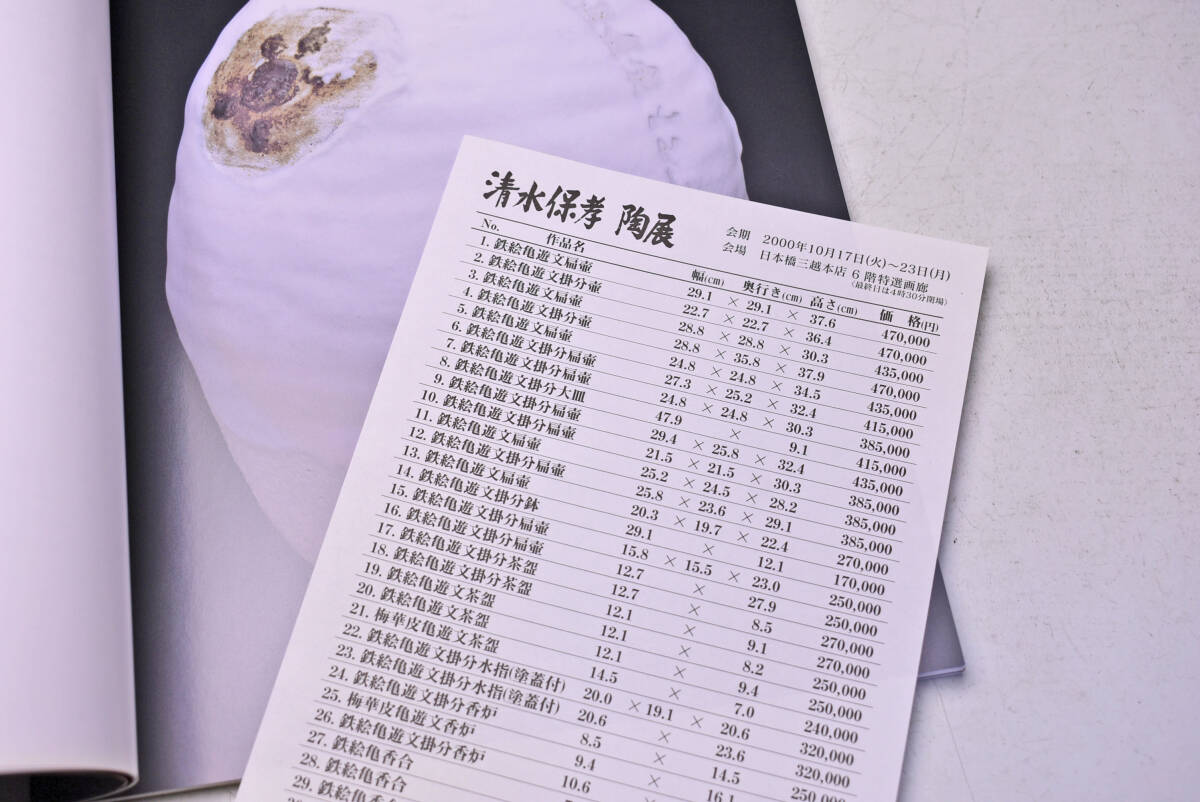 清水保孝 陶展
会期 2000年10月17日(火)～23日(月)
会場 日本橋三越本店 6 階特選画廊
(最終日は4時30分閉場)
No. 作品名 幅(cm) 奥行き(cm) 高さ(cm) 価 格(円)
1. 鉄絵亀遊文扁壺 29.1 × 29.1 × 37.6 470,000
2. 鉄絵亀遊文掛分壺 22.7 × 22.7 × 36.4 470,000
3. 鉄絵亀遊文扁壺 28.8 × 28.8 × 30.3 435,000
4. 鉄絵亀遊文掛分壺 28.8 × 35.8 × 37.9 470,000
5. 鉄絵亀遊文扁壺 24.8 × 24.8 × 34.5 435,000
6. 鉄絵亀遊文掛分扁壺 27.3 × 25.2 × 32.4 415,000
7. 鉄絵亀遊文掛分扁壺 24.8 × 24.8 × 30.3 385,000
8. 鉄絵亀遊文掛分大皿 47.9 × 9.1 415,000
9. 鉄絵亀遊文掛分扁壺 29.4 × 25.8 × 32.4 435,000
10. 鉄絵亀遊文掛分扁壺 21.5 × 21.5 × 30.3 385,000
11. 鉄絵亀遊文扁壺 25.2 × 24.5 × 28.2 385,000
12. 鉄絵亀遊文掛分扁壺 25.8 × 23.6 × 29.1 385,000
13. 鉄絵亀遊文扁壺 20.3 × 19.7 × 22.4 270,000
14. 鉄絵亀遊文掛分鉢 29.1 × 12.1 170,000
15. 鉄絵亀遊文掛分扁壺 15.8 × 15.5 × 23.0 250,000
16. 鉄絵亀遊文掛分扁壺 12.7 × 27.9 250,000
17. 鉄絵亀遊文掛分茶盌 12.7 × 8.5 270,000
18. 鉄絵亀遊文掛分茶盌 12.1 × 9.1 270,000
19. 鉄絵亀遊文茶盌 12.1 × 8.2 250,000
20. 鉄絵亀遊文茶盌 12.1 × 9.4 250,000
21. 梅華皮亀遊文茶盌 14.5 × 7.0 240,000
22. 鉄絵亀遊文掛分水指(塗蓋付) 20.0 × 19.1 × 20.6 320,000
23. 鉄絵亀遊文掛分水指(塗蓋付) 20.6 × 23.6 320,000
24. 鉄絵亀遊文掛分香炉 8.5 × 14.5 250,000
25. 梅華皮亀遊文香炉 9.4 × 16.1
26. 鉄絵亀遊文掛分香炉 10.6
27. 鉄絵亀香合
28. 鉄絵亀香合
29. 鉄絵亀香合